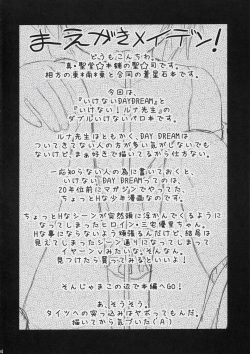 まえがき×イデン!
どうもこんちわ。
真・聖堂☆本舗の聖☆司です。
相方の東*南*東と合同の蒼星石本です。
今回は、
『いけないDAYDREAM』と
『いけない!ルナ先生』の
ダブルいけないパロ本です。
ルナ先生はともかく、DAY DREAMは
ついてきてない人の方が多い気がしないで
もないけど、まぁ好きで描いてるから仕方ない。
一応知らない人の為に書いておくと、
いけないDAY DREAMってのは、
20年位前にマガジンでやってた、
ちょっとHな少年漫画なのです。
ちょっとHなシーンが突然頭に浮かんでくるように
なってしまったヒロイン・三宅優夏ちゃん。
Hな事にならないよう頑張るんだけど、結局は
見えてしまったシーン通りになってしまって
イヤーン♡みたいな。そんな。
見つけたら買ってみるといいよ!
そんじゃまこの辺で本編へGO!
あ、そうそう。
タイツへの突っ込みはヤボってもんだ。
描いてから気づいた(A)